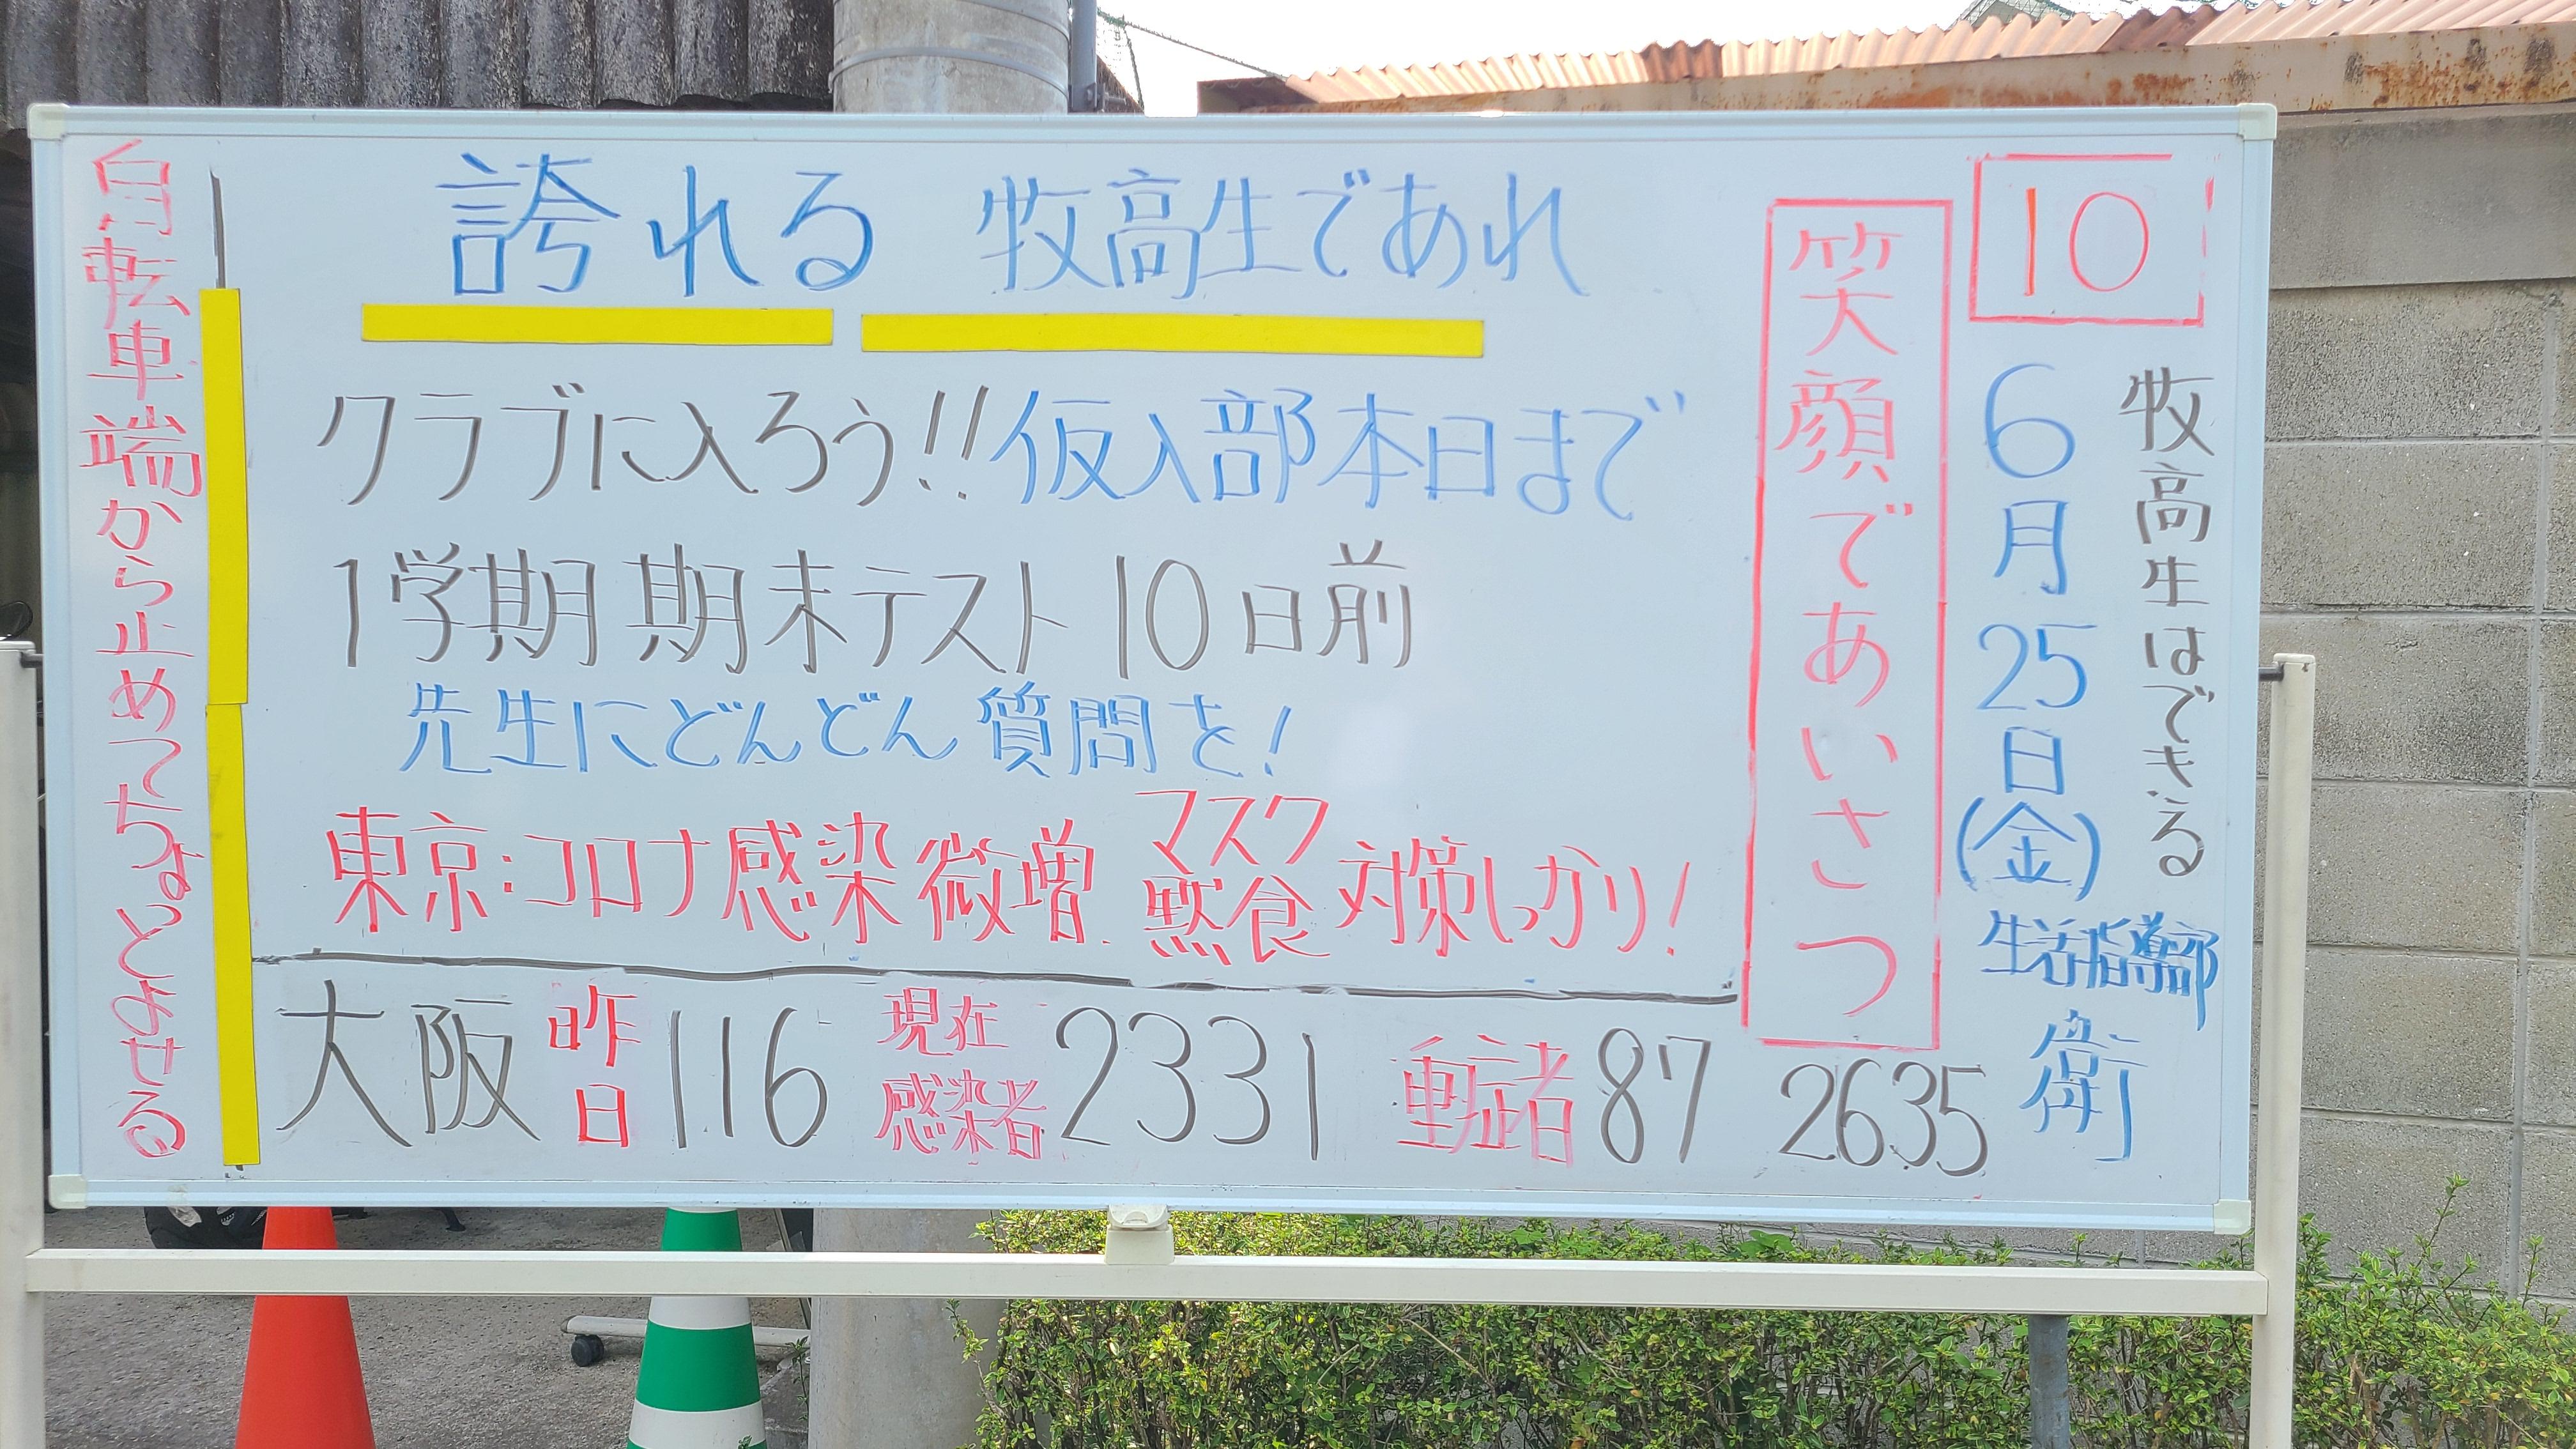 10
牧高生はできる
6月25日(金)
生活指導部
衛
笑顔であいさつ
誇れる 牧高生であれ
クラブに入ろう!!仮入部本日まで
1学期期末テスト10日前
先生にどんどん質問を!
東京:コロナ感染微増 マスク 黙食 対策しっかり!
大阪 昨日 116 現在感染者 2331 重症者 87 2635
自転車端から止めてちょっとよせる